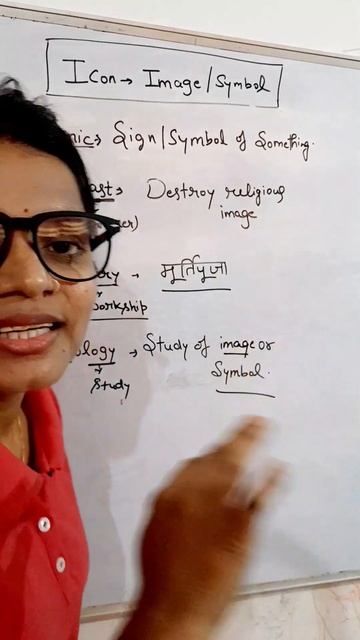 Icon → Image/Symbol
nic → Sign/Symbol of Something.
ast → Destroy religious
image
er)
ry → मूर्तिपूजा
workship
ology → Study of image or
Symbol.
Study